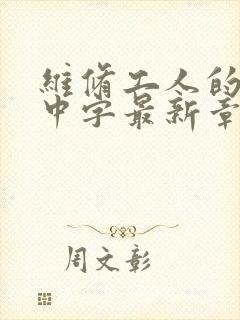 維脩工人的
中字最新章
周文彰